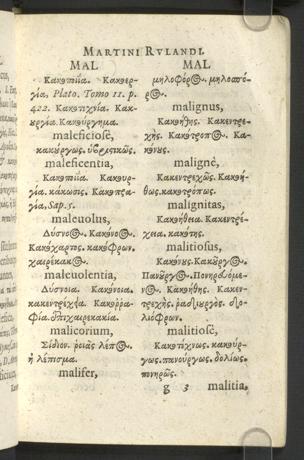 MARTINI RVLANDI.
MAL
Κακοποιΐα. Κακοεργία,
Plato. Tomo 11. p.
422. Κακοτεχνία. Κακουργία.
Κακούργημα.
maleficiosè,
κακούργως. ὑβριστικῶς.
maleficentia,
Κακοποιΐα. Κακουργία.
κάκωσις. Κακοπραγία,
Sap. 5.
maleuolus,
Δύσνοος. Κακόνοος.
Κακόχαρτος. κακόφρων.
χαιρέκακος.
maleuolentia,
Δύσνοια. Κακόνοια.
κακεντρέχεια. Κακορραφία.
ἐπιχαιρεκακία.
malicorium,
Σίδιον. ῥοιᾶς λέπος.
ἢ λέπισμα.
malifer,
MAL
μηλοφόρος. μηλοσπόρος.
malignus,
Κακοήθης. Κακεντρεχής.
Κακότροπος. Κακόνους.
malignè,
Κακεντρεχῶς. Κακοήθως.
κακοτρόπως.
malignitas,
Κακοήθεια. Κακεντρέχεια.
κακότης.
malitiosus,
Κακόνους. Κακοῦργος.
Πανοῦργος. Πονηρευόμενος.
Κακοήθης. Κακεντρεχής.
ῥᾳδιουργὸς. δολιόφρων.
malitiosè,
Κακοτέχνως. κακούργως.
πανούργως. δολίως.
πονηρῶς.
g 3 malitia,